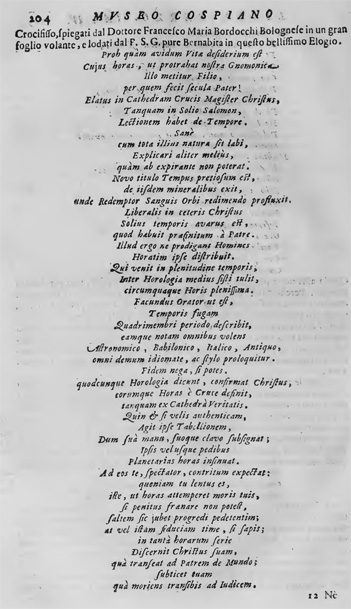 204 MVSEO COSPIANO
Crocifisso, spiegati dal Dottore Francesco Maria Bordocchi Bolognese in un gran
foglio volante, e lodati dal P. S. G. pure Bernabita in questo bellissimo Elogio.
Proh quàm avidum Vita desiderium est
Cujus horas, ut protrahat nostra Gnomonica
Illo metitur Filio,
per quem fecit secula Pater!
Elatus in Cathedram Crucis Magister Christus,
Tanquam in Solio Salomon,
Lectionem habet de Tempore.
Sanè
cum tota illius natura sit labi,
Explicari aliter melius,
quàm ab expirante non poterat.
Novo titulo Tempus pretiosum est,
de iisdem mineralibus exit,
unde Redemptor Sanguis Orbi redimendo profluxit.
Liberalis in ceteris Christus
Solius temporis avarus est,
quod habuit præfinitum à Patre.
Illud ergo ne prodigant Homines
Horatim ipse distribuit.
Qui venit in plenitudine temporis,
Inter Horologia medius sisti tulit,
circumquaque Horis plenissima.
Facundus Orator ut est,
Temporis fugam
Quadrimembri periodo describit,
eamque notam omnibus volens
Astronomico, Babilonico, Italico, Antiquo,
omni demum idiomate, ac stylo proloquitur.
Fidem nega, si potes.
quodcunque Horologia dicunt, confirmat Christus,
eorumque Horas è Cruce definit,
tanquam ex Cathedrà Veritatis.
Quin & si velis authenticam,
Agit ipse Tabellionem,
Dum suà manu, suoque clavo subsignat;
Ipsis velusque pedibus
Planetarias horas insinuat.
Ad eos te, spectator, contritum expectat:
quoniam tu lentus es,
iste, ut horas attemperet moris tuis,
si penitus franare non potest,
saltem sic jubet progredi pedetentim;
at vel istam fiduciam time, si sapis;
in tantà horarum serie
Discernit Christus suam,
quà transeat ad Patrem de Mundo;
subticet tuam
quà moriens transibis ad Iudicem.
12 Nè